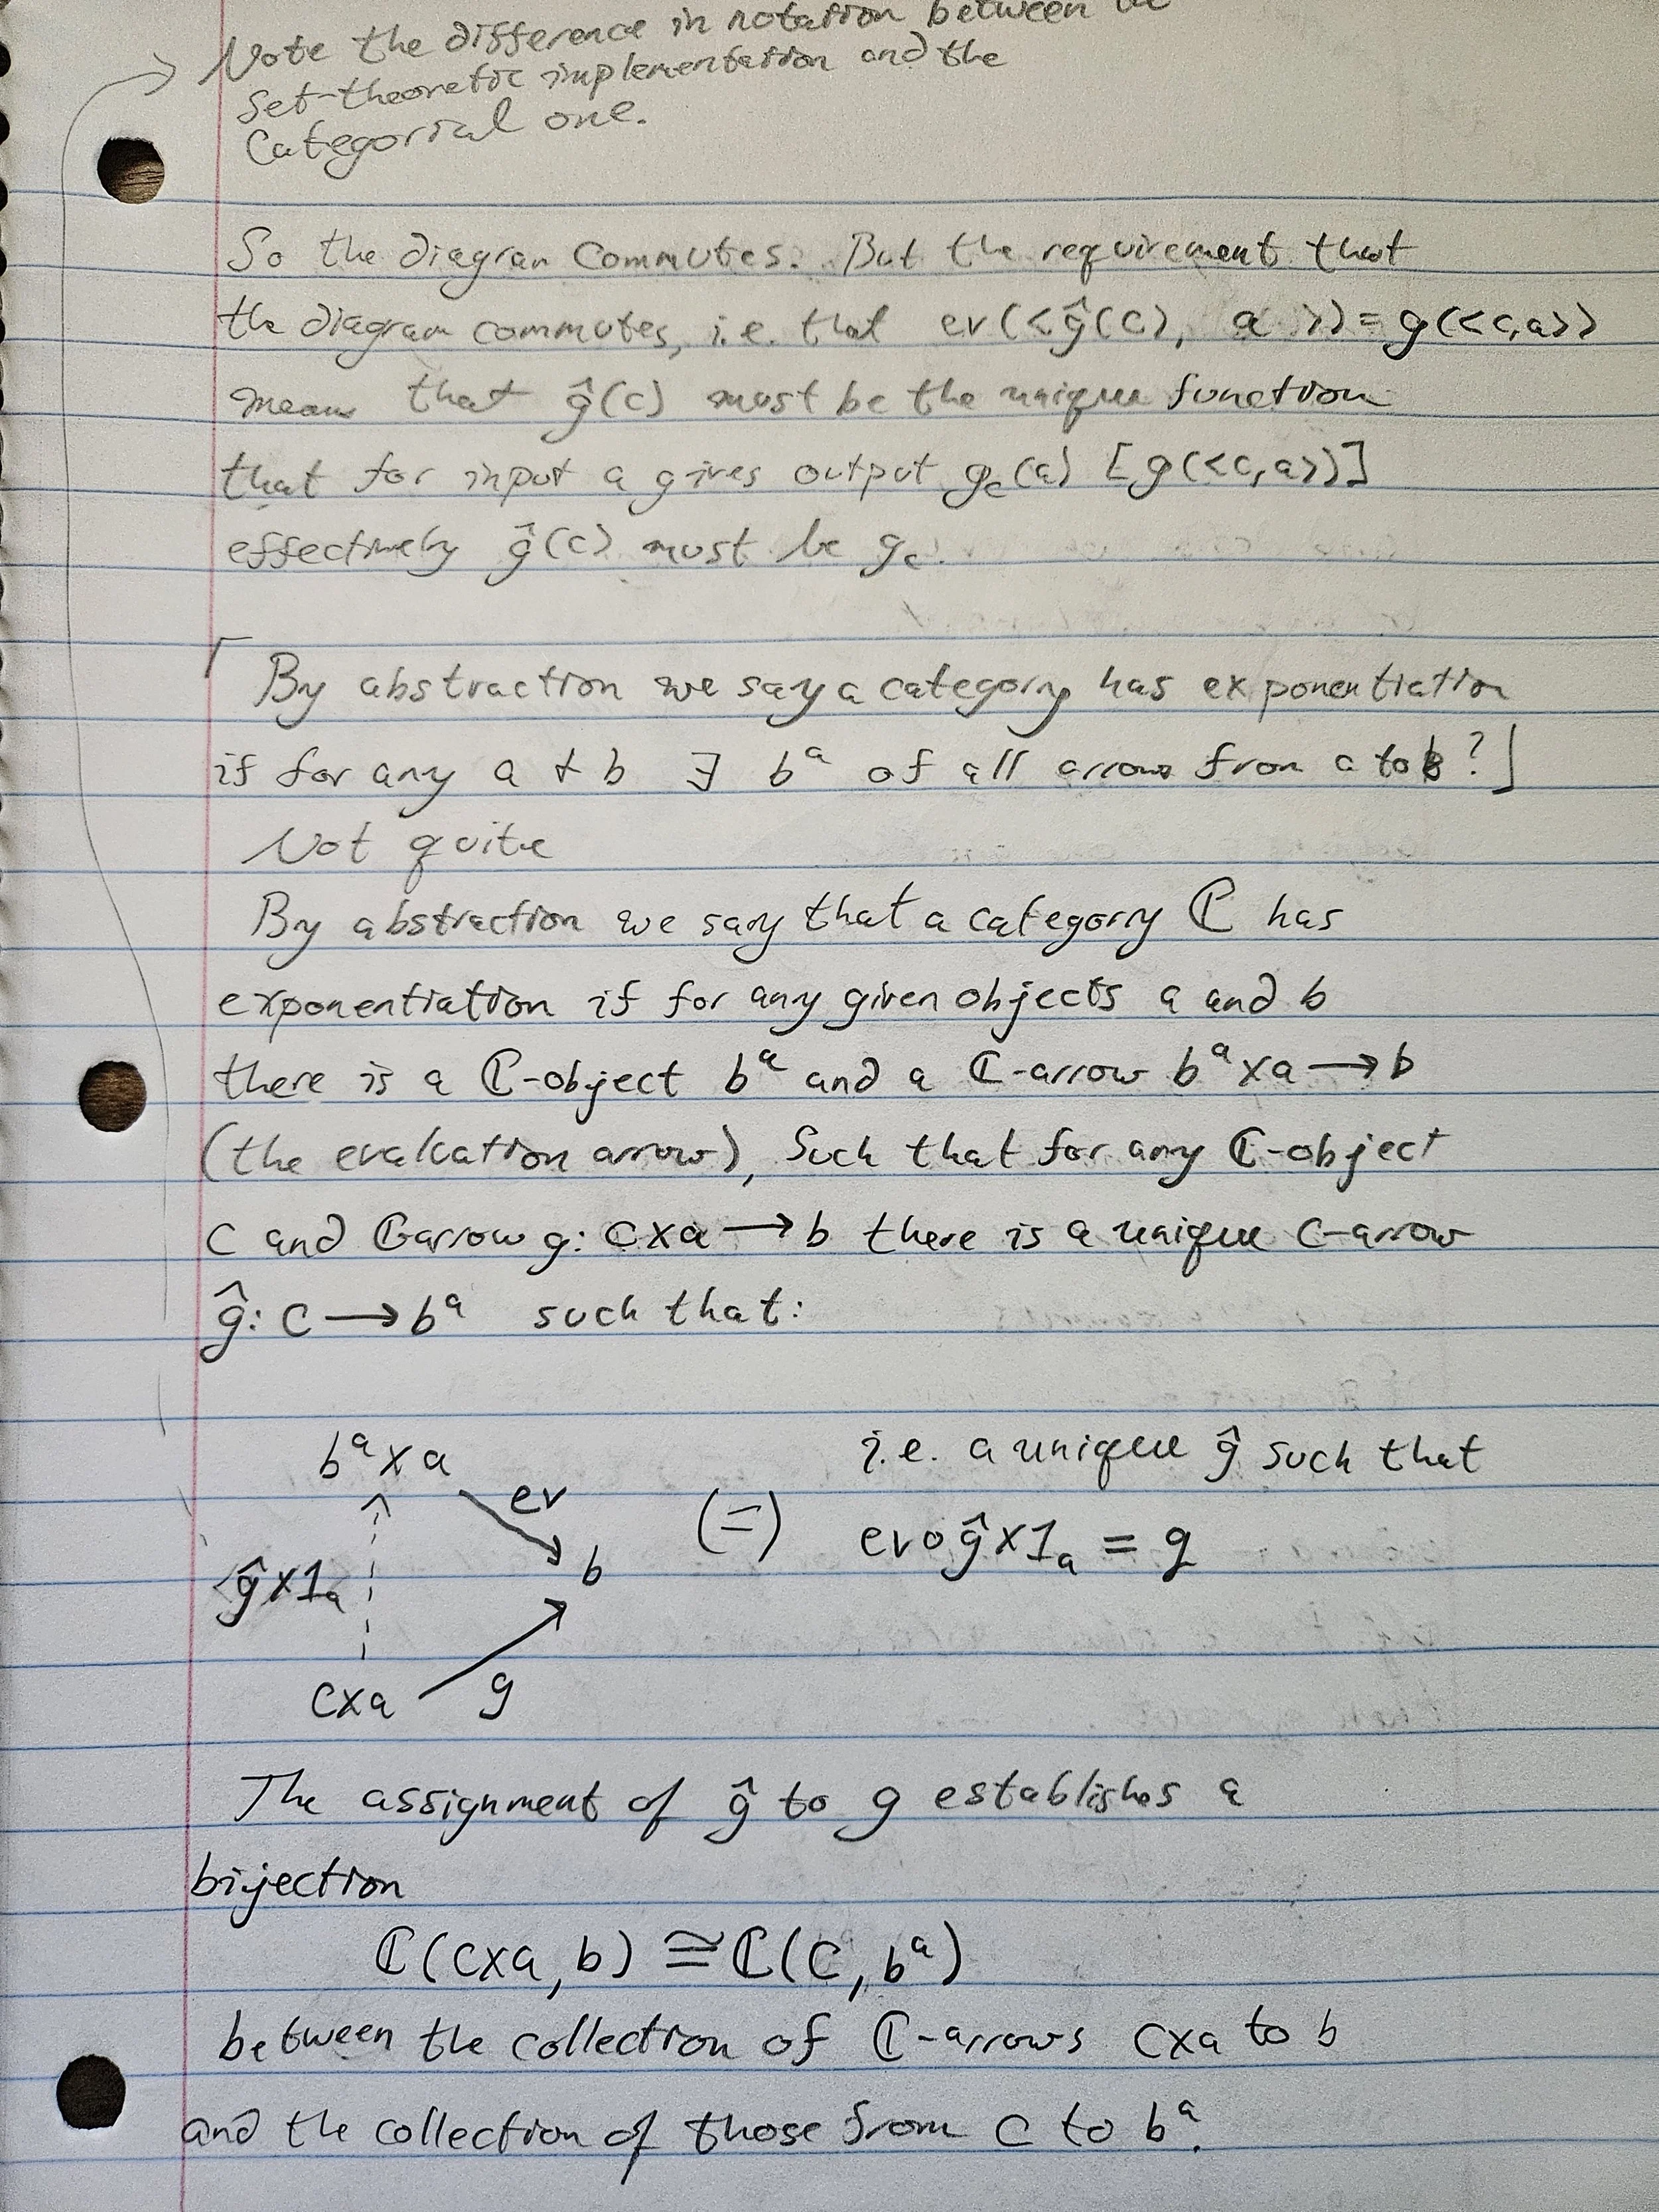 Note the difference in notation between the
Set-theoretic implementation and the
Categorial one.
So the diagram commutes. But the requirement that
the diagram commutes, i.e. that ev(<ĝ(c), a>) = g(<c,a>)
means that ĝ(c) must be the unique function
that for input a gives output g_c(a) [g(<c,a>)]
effectively ĝ(c) must be g_c.
⌈By abstraction we say a category has exponentiation
if for any a & b ∃ bᵃ of all arrows from a to b?⌋
Not quite
By abstraction we say that a category ℂ has
exponentiation if for any given objects a and b
there is a ℂ-object bᵃ and a ℂ-arrow bᵃ×a → b
(the evaluation arrow), Such that for any ℂ-object
c and ℂ-arrow g: c×a → b there is a unique c-arrow
ĝ: c → bᵃ such that:
bᵃ×a
ev
ĝ×1ₐ
b
c×a
g
(=)
i.e. a unique ĝ such that
ev∘ĝ×1ₐ = g
The assignment of ĝ to g establishes a
bijection
ℂ(c×a, b) ≅ ℂ(c, bᵃ)
between the collection of ℂ-arrows c×a to b
and the collection of those from c to bᵃ.